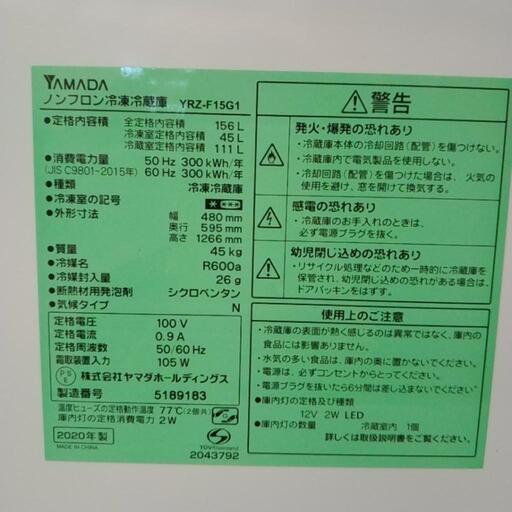 YAMADA
ノンフロン冷凍冷蔵庫 YRZ-F15G1
●定格内容積 全定格内容積 156 L
冷凍室定格内容積 45 L
冷蔵室定格内容積 111 L
●消費電力量 50 Hz 300 kWh/年
(JIS C9801-2015年) 60 Hz 300 kWh/年
●種類 冷凍冷蔵庫
●冷凍室の記号
●外形寸法 幅 480 mm
奥行 595 mm
高さ 1266 mm
●質量 45 kg
●冷媒名 R600a
●冷媒封入量 26 g
●断熱材用発泡剤 シクロペンタン
●気候タイプ N
定格電圧 100 V
定格電流 0.9 A
定格周波数 50/60 Hz
電熱装置入力 105 W
PSE 株式会社ヤマダホールディングス
製造番号 5189183
温度ヒューズの定格動作温度 77℃(2個共)
庫内灯の定格消費電力 2W
2020年製
MADE IN CHINA
TÜVRheinland
2043792
警告
発火・爆発の恐れあり
・冷蔵庫本体の冷却回路(配管)を傷つけない。
・冷蔵庫内で電気製品を使用しない。
・冷却回路(配管)を傷つけた場合は、火気の
使用を避け、窓を開けて換気する。
感電の恐れあり
・冷蔵庫のお手入れのときは、
必ず電源プラグを抜く。
幼児閉じ込めの恐れあり
・リサイクル処理などのため一時的に冷蔵庫を
保管され、幼児閉じ込めが懸念される場合は、
ドアパッキンはずす。
使用上のご注意
・冷蔵庫の表面が熱く感じるのは異常ではなく、庫内の
食品には影響ありません。
・水気の多い食品は、庫内の奥に置かないでください。
・電源は、必ずコンセントからとってください。
・電源プラグを抜いたら6分間は差し込まないでください。
●庫内灯の定格及び種類
12V 2W LED
●庫内灯の数量 冷蔵室内 1個
詳しくは取扱説明書をご覧ください。